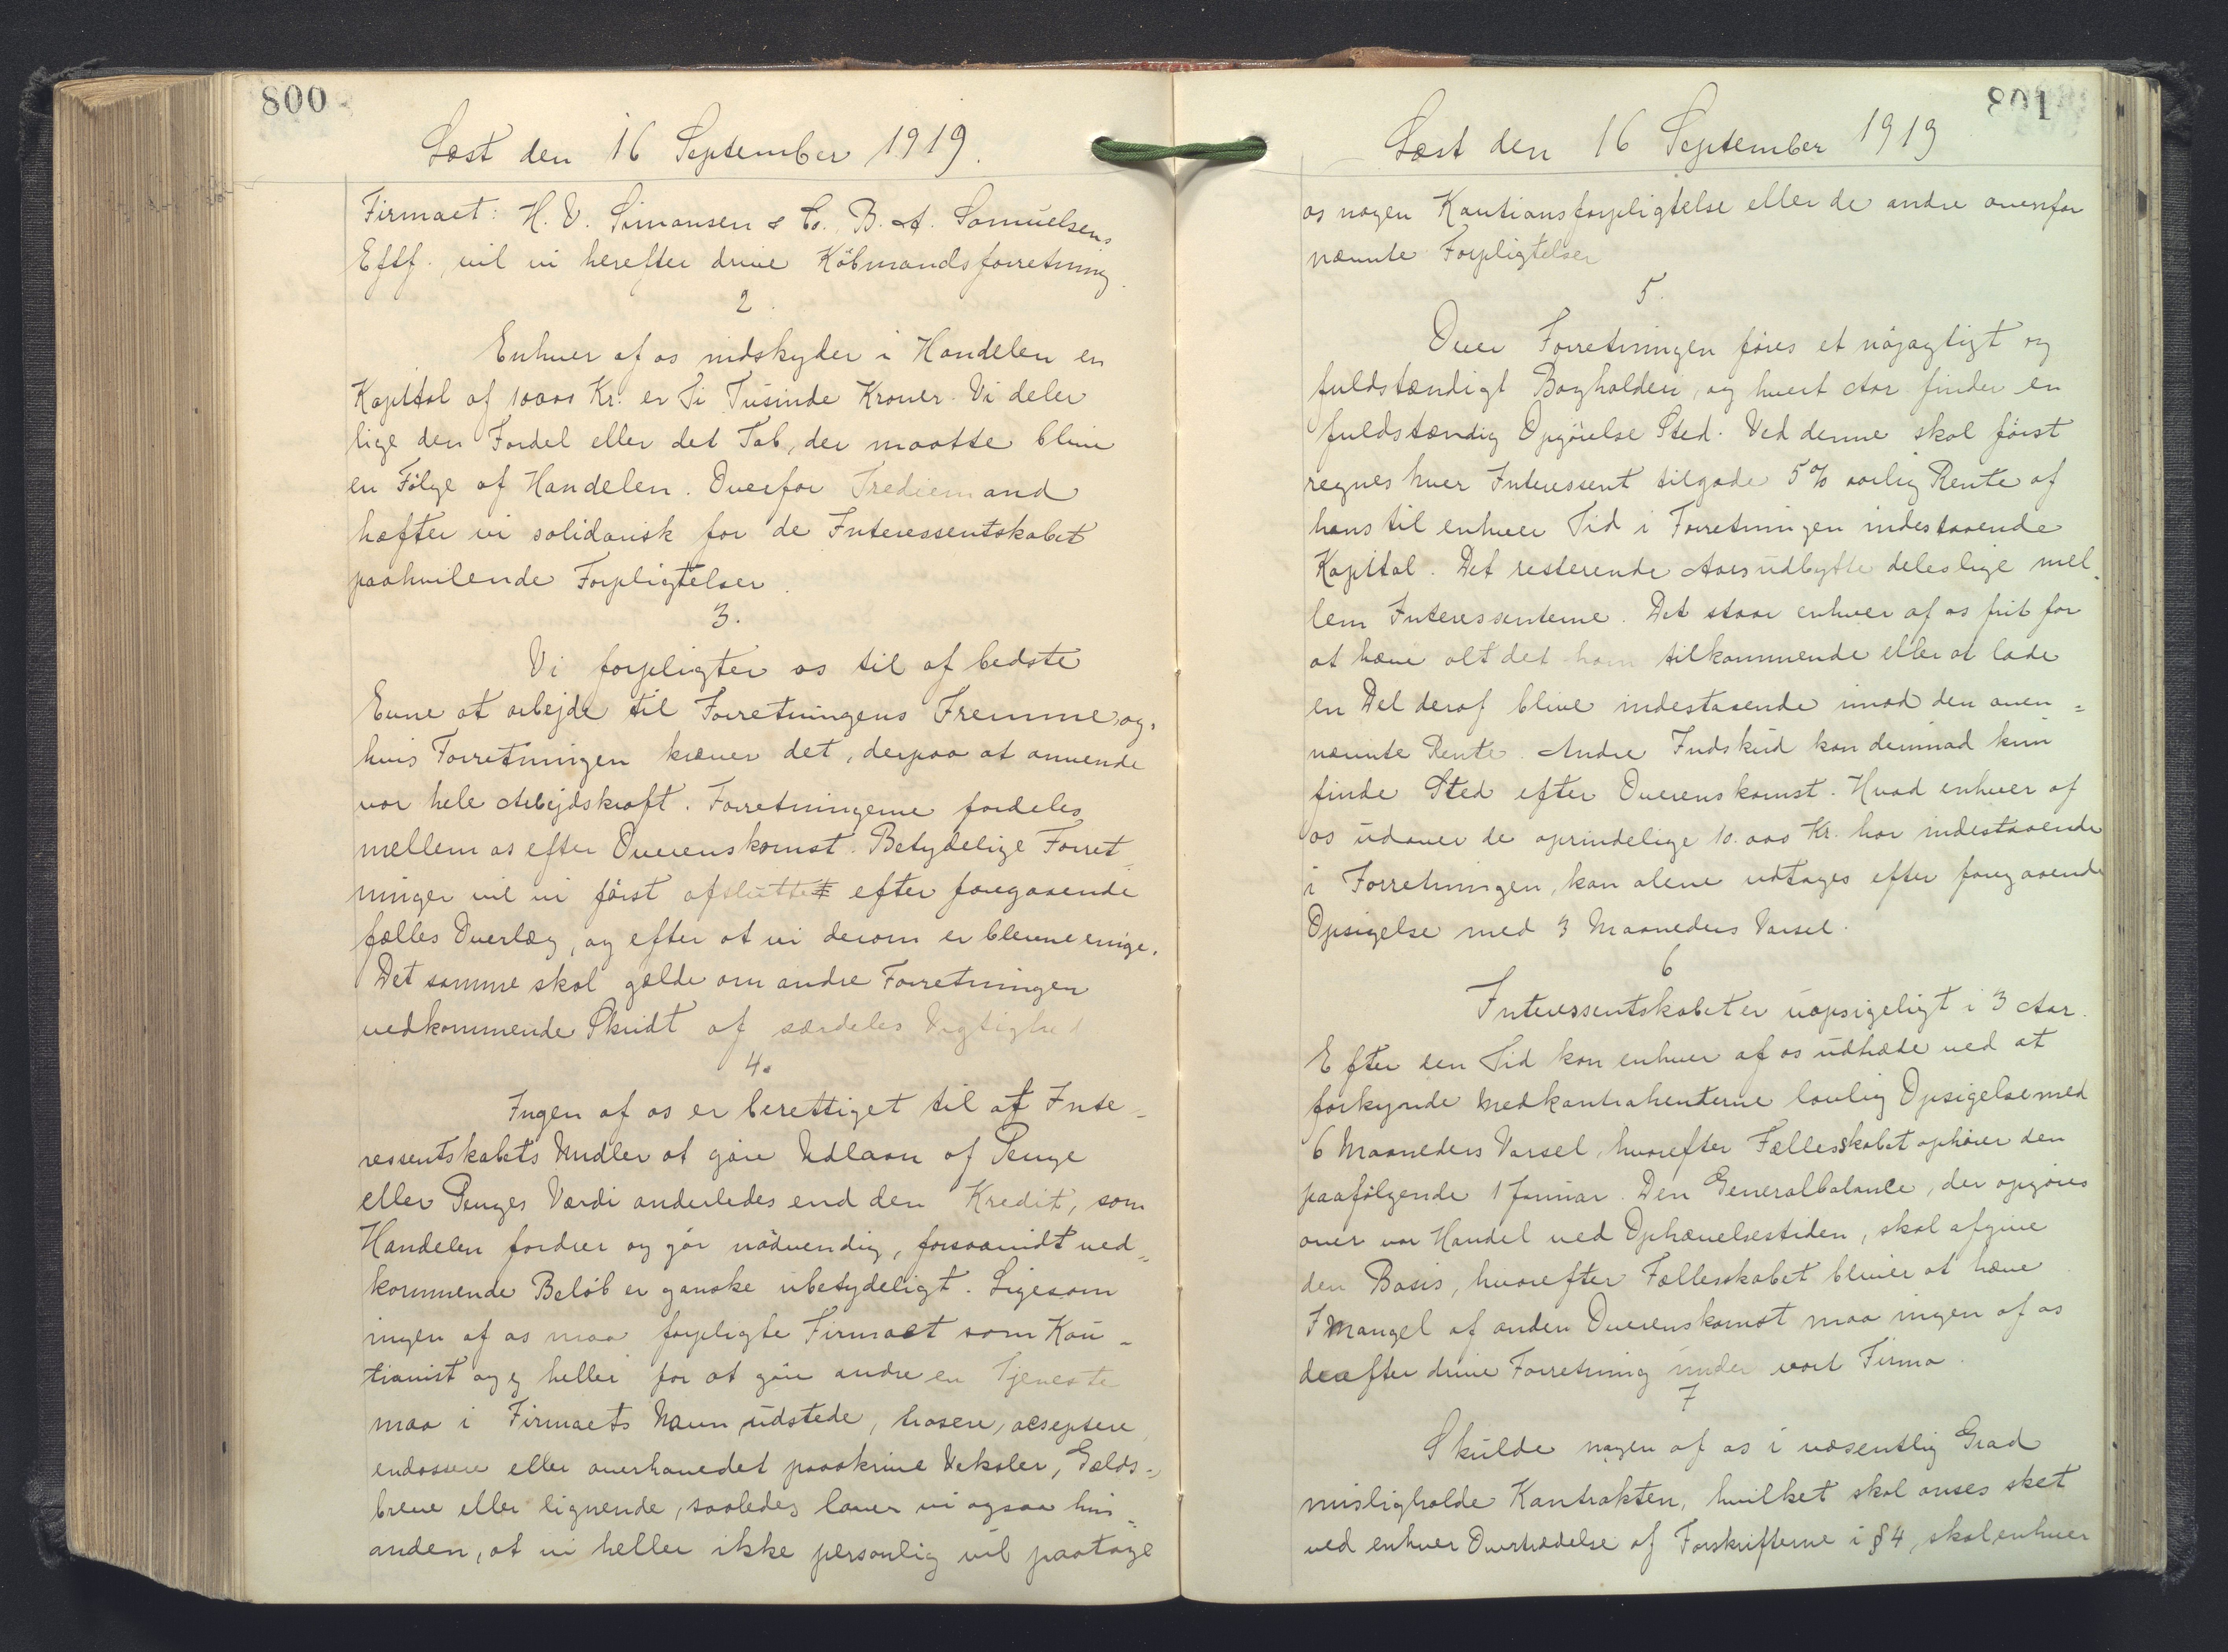 800
Læst den 16 September 1919.
Firmaet: H. V. Simonsen & Co. B. A. Samuelsens
Eftf. vil vi herefter drive Köbmandsforretning.
2.
Enhver af os indskyder i Handelen en
Kapital af 10000 Kr. er Ti Tusinde Kroner. Vi deler
lige den Fordel eller det Tab, der maatte blive
en Fölge af Handelen. Overfor Trediemand
hæfter vi solidarisk for de Interessentskabet
paahvilende Forpligtelser.
3.
Vi forpligter os til af bedste
Evne at arbejde til Forretningens Fremme, og,
hvis Forretningen kræver det, derpaa at anvende
vor hele Arbejdskraft. Forretningerne fordeles
mellem os efter Overenskomst. Betydelige Forret-
ninger vil vi först afslutte efter foregaaende
fælles Overlæg, og efter at vi derom er blevne enige.
Det samme skal gælde om andre Forretningen
vedkommende Skridt af særdeles Vigtighed
4.
Ingen af os er berettiget til af Inte-
ressentskabets Midler at göre Udlaan af Penge
eller Penges Værdi anderledes end den Kredit, som
Handelen fordrer og gör nödvendig, forsaavidt ved-
kommende Belöb er ganske ubetydeligt. Ligesom
ingen af os maa forpligte Firmaet som Kau-
tionist og ej heller for at göre andre en Tjeneste
maa i Firmaets Navn udstede, trasere, acseptere,
endossere eller overhovedet paaskrive Veksler, Gælds-
breve eller lignende, saaledes lover vi ogsaa hin-
anden, at vi heller ikke personlig vil paatage
801
Læst den 16 September 1919
os nogen Kautionsforpligtelse eller de andre ovenfor
nævnte Forpligtelser
5.
Over Forretningen föres et nöjagtigt og
fuldstændigt Bogholderi, og hvert Aar finder en
fuldstændig Opgörelse Sted. Ved denne skal först
regnes hver Interessent tilgode 5% aarlig Rente af
hans til enhver Tid i Forretningen indestaaende
Kapital. Det resterende Aarsudbytte deles lige mel-
lem Interessenterne. Det staar enhver af os frit for
at hæve alt det ham tilkommende eller at lade
en Del deraf blive indestaaende imod den oven=
nævnte Rente. Andre Indskud kan derimod kun
finde Sted efter Overenskomst. Hvad enhver af
os udover de oprindelige 10.000 Kr. har indestaaende
i Forretningen, kan alene udtages efter foregaaende
Opsigelse med 3 Maaneders Varsel.
6
Interessentskabet er uopsigeligt i 3 Aar.
Efter den Tid kan enhver af os udtræde ved at
forkynde Medkontrahenterne lovlig Opsigelse med
6 Maaneders Varsel, hvorefter Fællesskabet ophörer den
paafölgende 1 Januar. Den Generalbalance, der opgöres
over vor Handel ved Ophævelsestiden, skal afgive
den Basis, hvorefter Fællesskabet bliver at hæve
I Mangel af anden Overenskomst maa ingen af os
derefter drive Forretning under vort Firma.
7
Skulde nogen af os i væsentlig Grad
misligholde Kontrakten, hvilket skal anses sket
ved enhver Overtrædelse af Forskrifterne i § 4, skal enhver